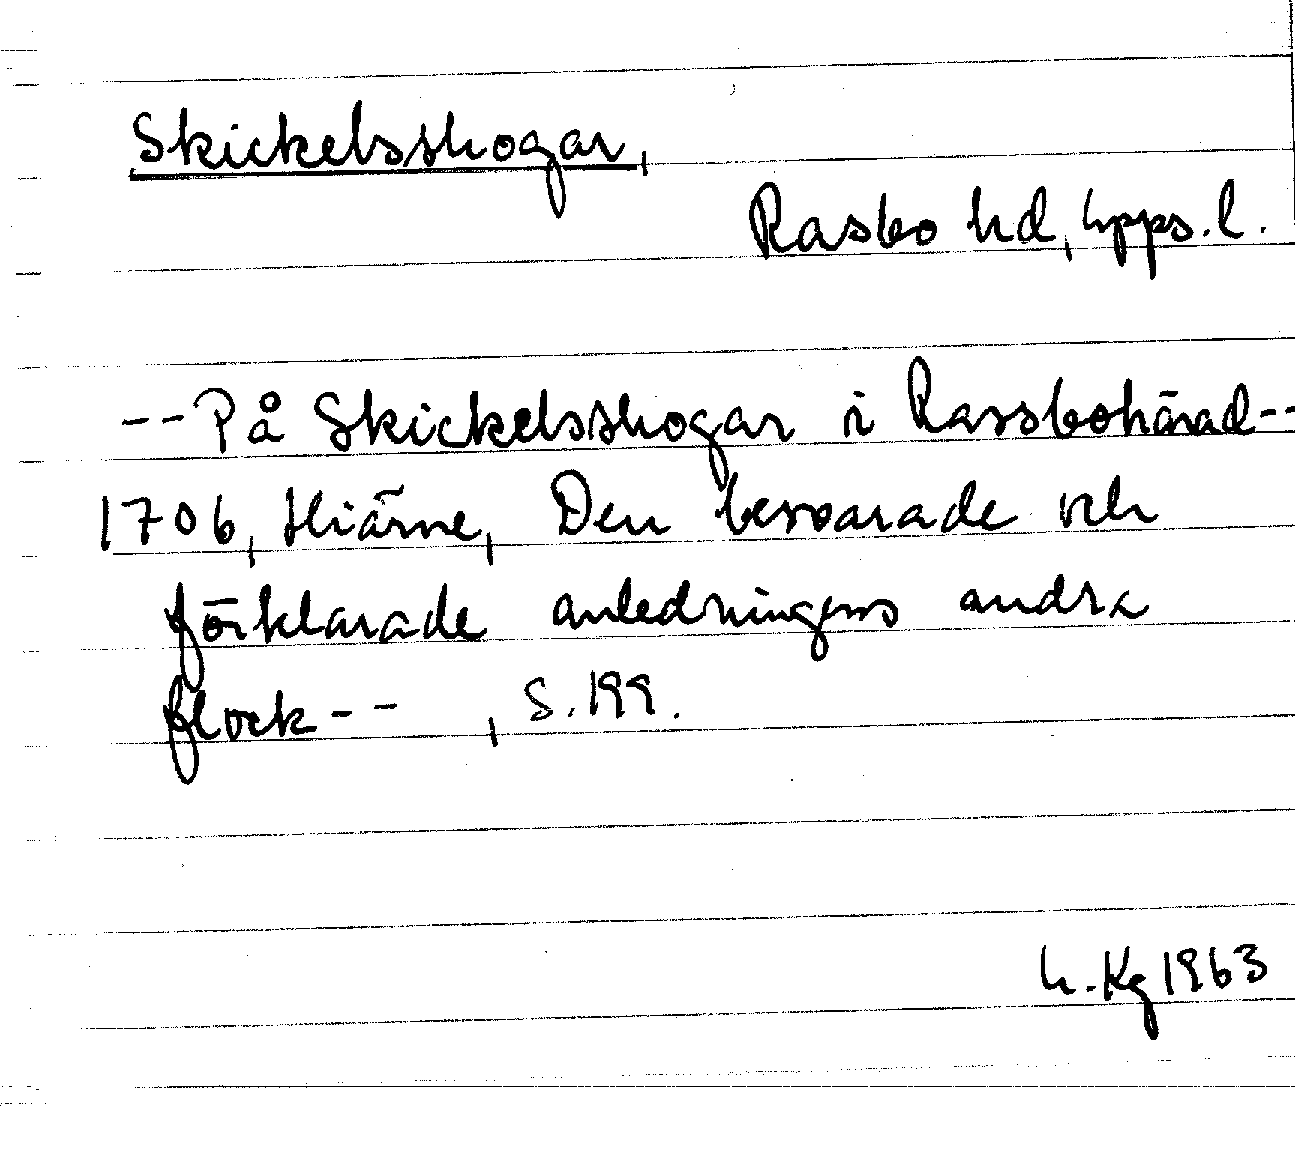 Skickelsskogar,
Rasbo hd, Upps. l.
--På Skickelsskogar i Rassbohärad--
1706, Hiärne, Den besvarade och
förklarade anledningens andra
flock--, S. 199.
h. Kg 1963